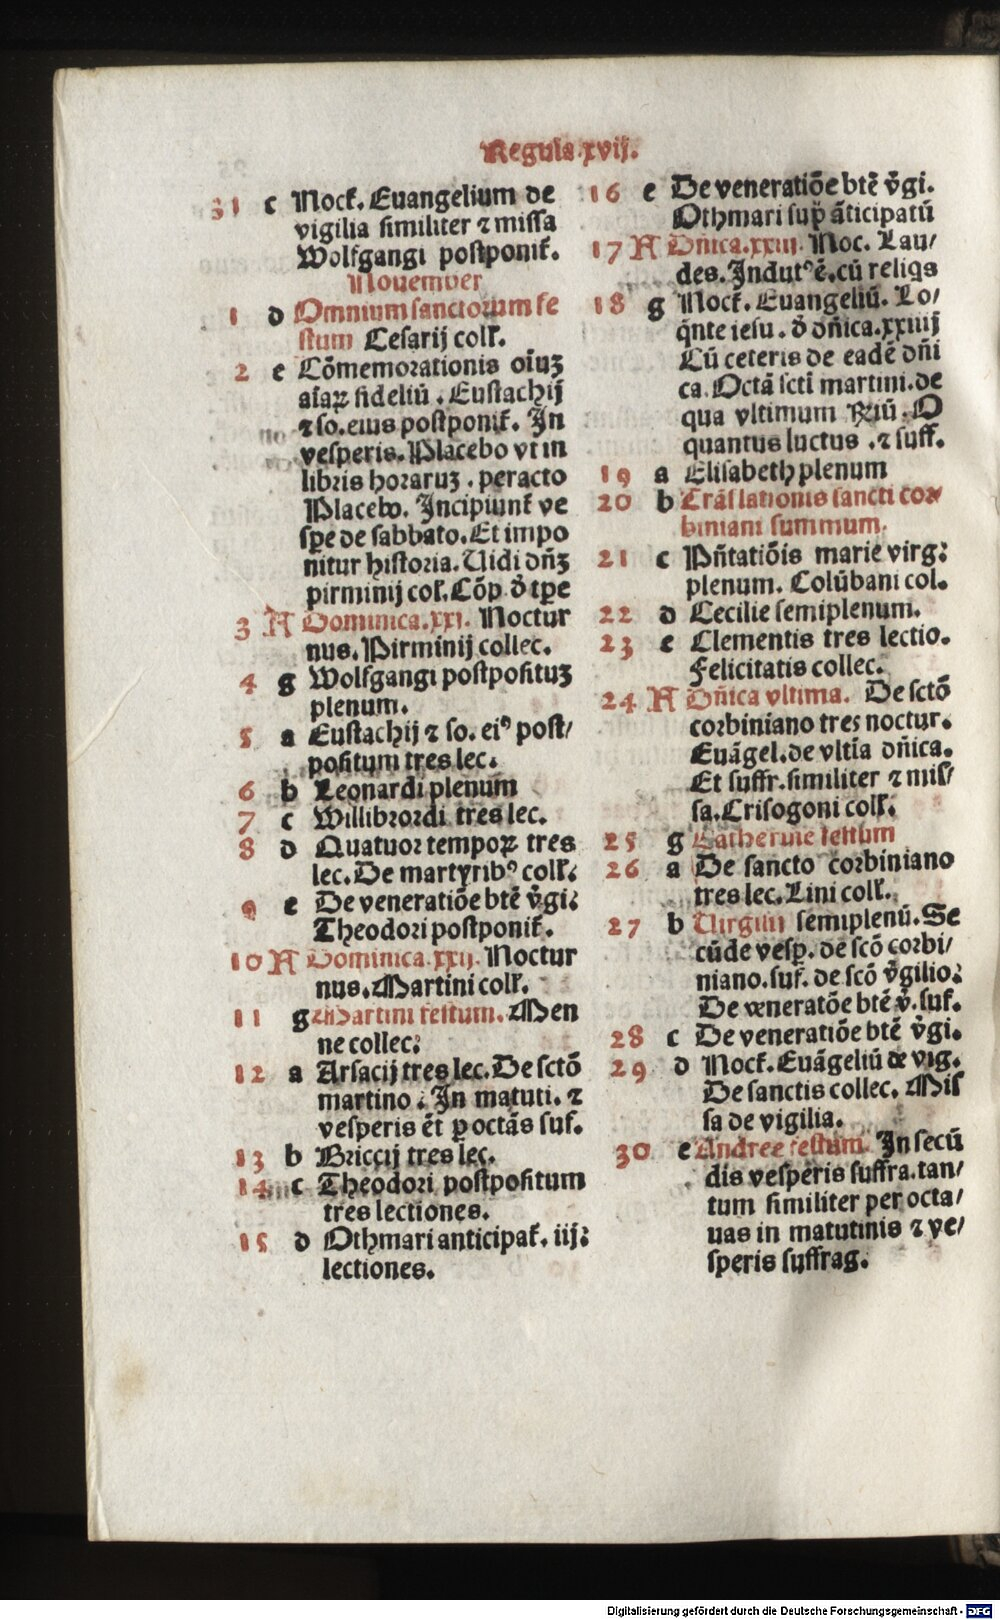 Regula.xvij.
31 c Nocf̄. Euangelium de
vigilia similiter ⁊ missa
Wolfgangi postponit̄.
Nouember
1 d Omnium sanctorum fe
stum Cesarij coll̄.
2 e Cõmemorationis oĩuꝫ
aĩaꝝ fideliũ . Eustachij
⁊ so. eius postponit̄. In
vesperis. Placebo vt in
libris horaruꝫ . peracto
Placebo. Incipiunt̄ ve
sꝑe de sabbato. Et impo
nitur historia. Uidi dñꝫ
pirminij col̄. Cõp d̓ tꝑe
3 A Dominica.xxi. Noctur
nus. Pirminij collec.
4 g Wolfgangi postposituꝫ
plenum.
5 a Eustachij ⁊ so. eiꝰ post/
positum tres lec.
6 b Leonardi plenum
7 c Willibrordi tres lec.
8 d Quatuor tempoꝝ tres
lec. De martyribꝰ coll̄:
9 e De veneratiõe btẽ v̓gi:
Theodori postponit̄.
10 A Dominica.xxij. Noctur
nus. Martini coll̄.
11 g Martini festum. Men
ne collec:
12 a Arsacij tres lec. De sctõ
martino : In matuti. ⁊
vesperis ẽt ꝑ octãs suf.
13 b Briccij tres lec.
14 c Theodori postpositum
tres lectiones.
15 d Othmari anticipat̄. iij:
lectiones.
16 e De veneratiõe btẽ v̓gi.
Othmari sup̄ ãticipatũ
17 A Dñica.xxiii. Noc. Lau/
des. Indutꝰ ẽ. cũ reliqs
18 g Nocf̄. Euangeliũ. Lo/
q̃nte iesu . d̓ dñica.xxiiij
Cũ ceteris de eadẽ dñi
ca. Octã scti martini. de
qua vltimum Riũ . O
quantus luctus . ⁊ suff.
19 a Elisabeth plenum
20 b Trãslationis sancti cor
biniani summum.
21 c Pñtatiõis marie virg:
plenum. Colũbani col.
22 d Cecilie semiplenum.
23 e Clementis tres lectio.
Felicitatis collec.
24 A Dñica vltima. De sctõ
corbiniano tres noctur.
Euãgel. de vltĩa dñica.
Et suffr. similiter ⁊ mis/
sa. Crisogoni coll̄.
25 g Catherine festum
26 a De sancto corbiniano
tres lec. Lini coll̄.
27 b Uirgilii semiplenũ. Se
cũde vesp. de scõ corbi/
niano. suf. de scõ v̓gilio:
De veneratõe btẽ v̓. suf.
28 c De veneratiõe btẽ v̓gi.
29 d Nocf̄. Euãgeliũ de vig.
De sanctis collec. Mis
sa de vigilia.
30 e Andree festum. In secũ
dis vesperis suffra. tan/
tum similiter per octa/
uas in matutinis ⁊ ve/
speris suffrag.
Digitalisierung gefördert durch die Deutsche Forschungsgemeinschaft - DFG